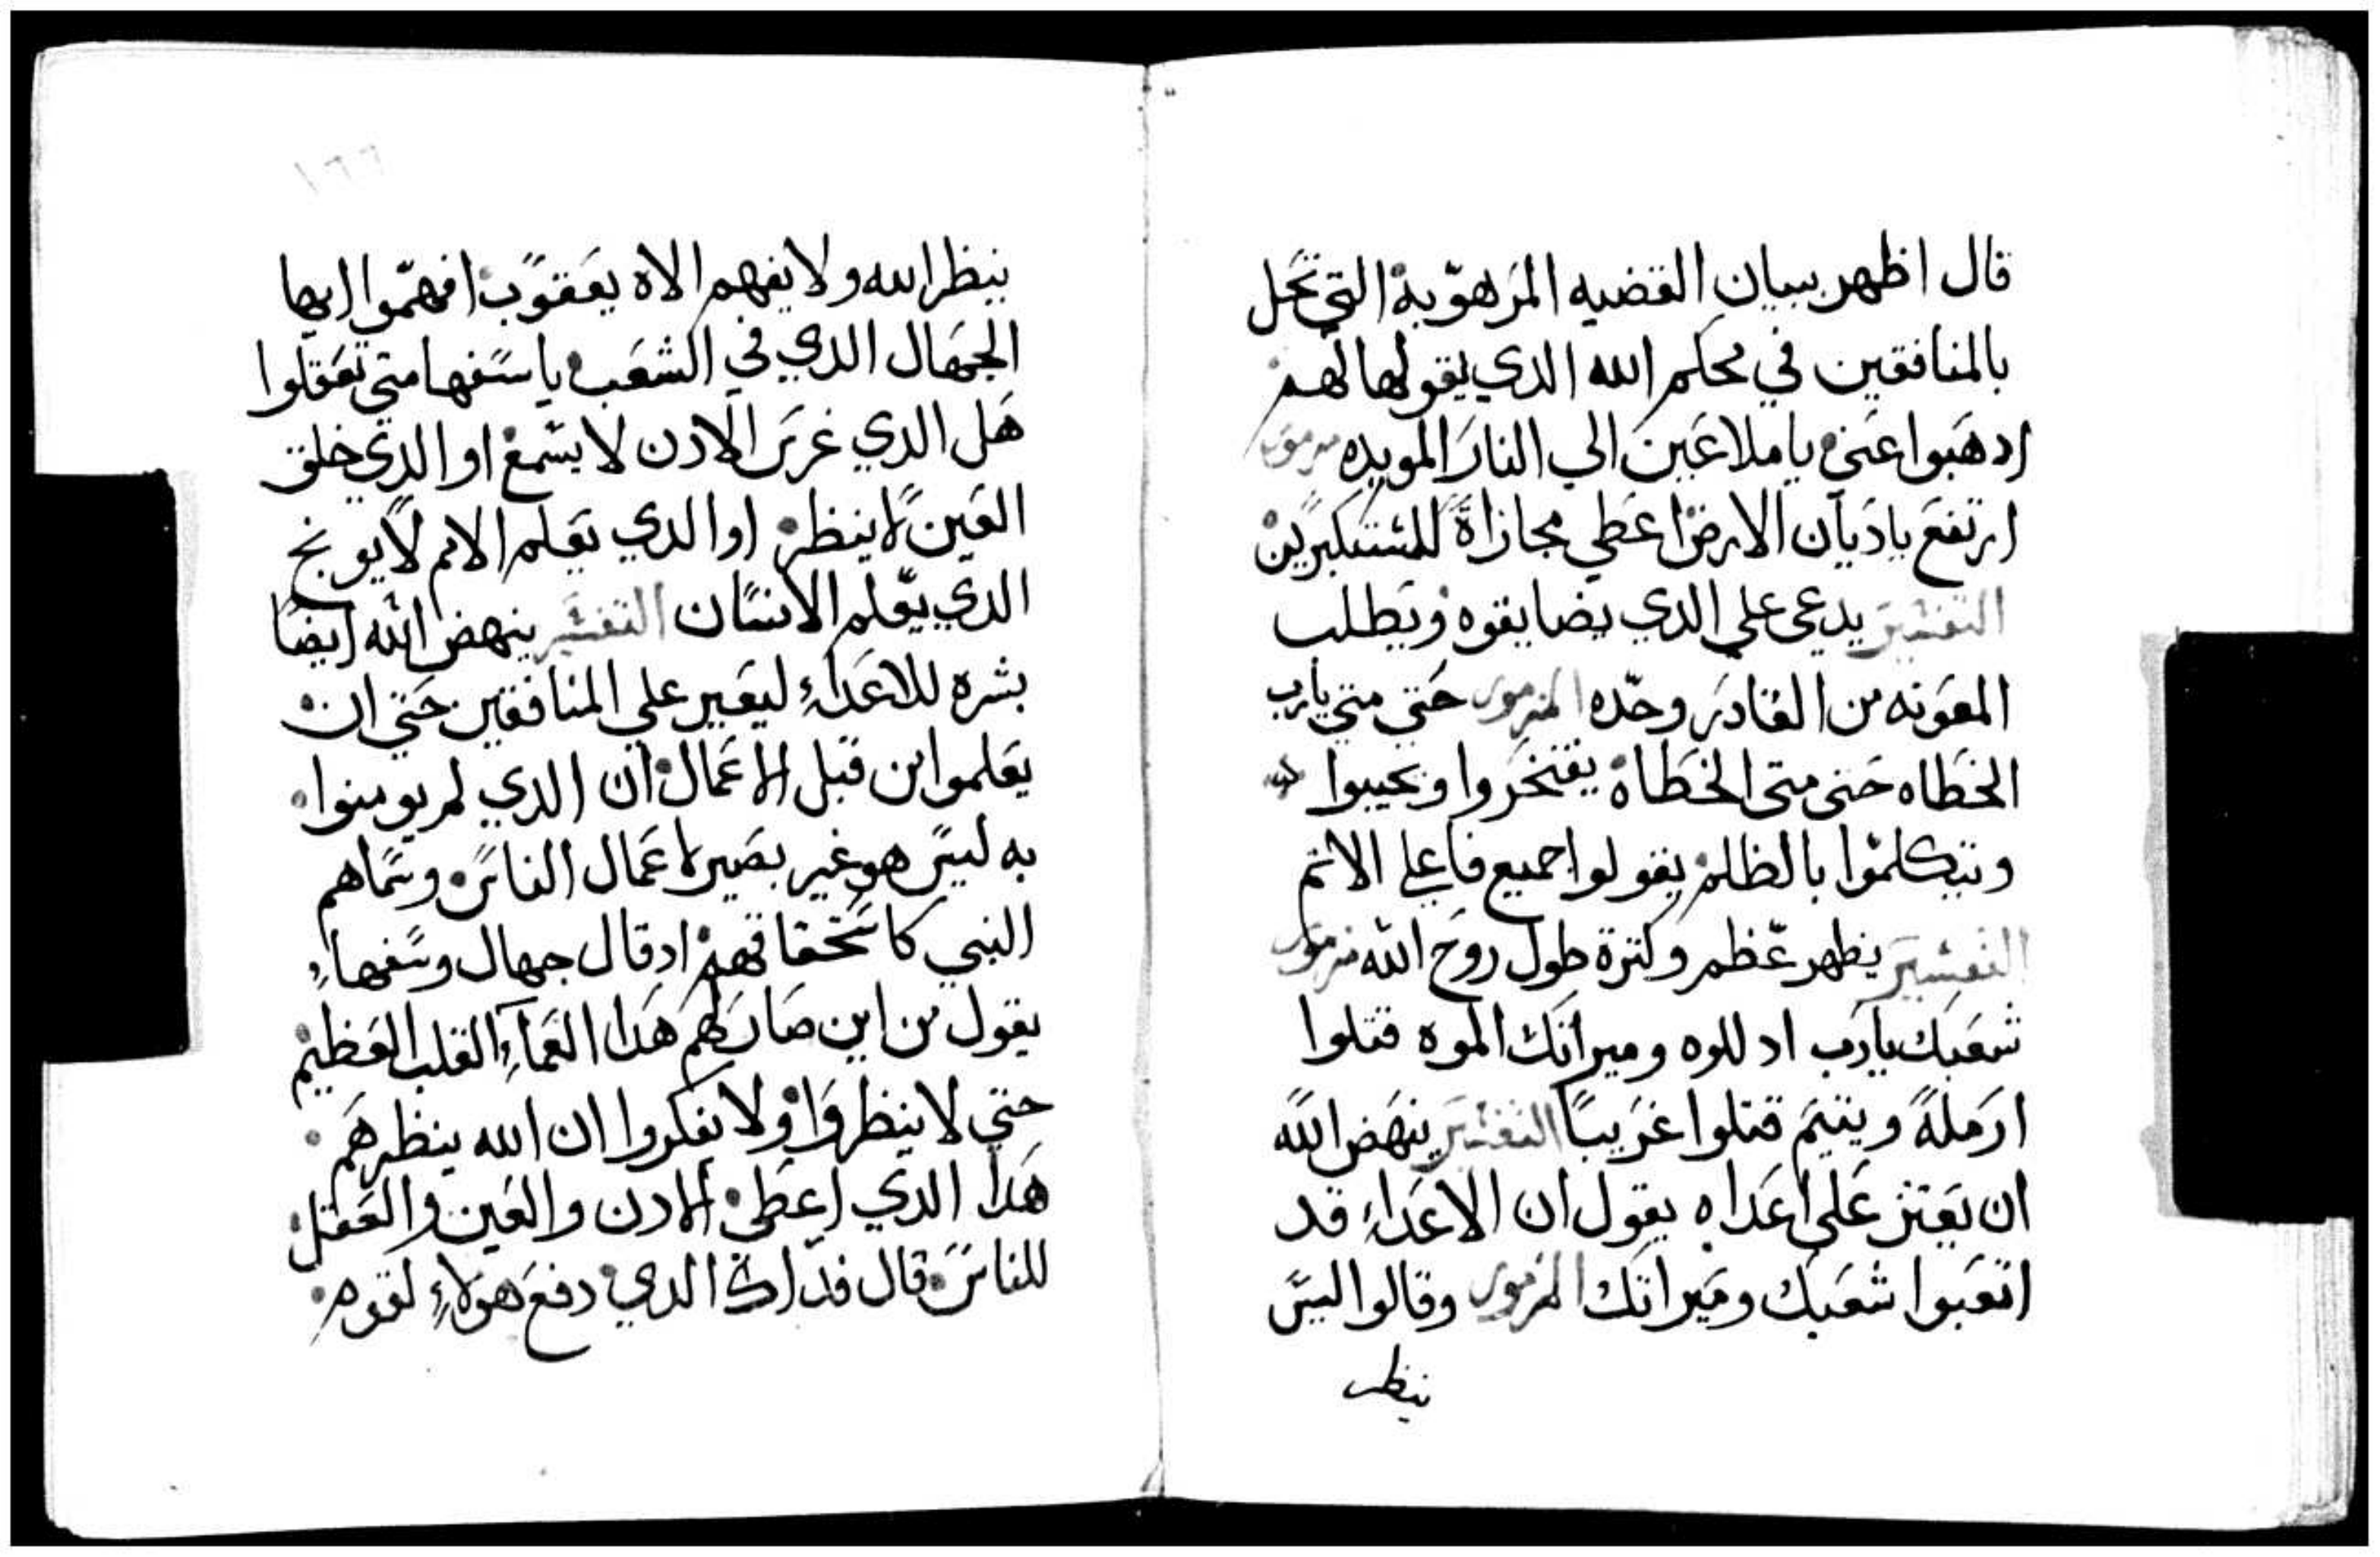 قال اظهر ببيان القضيه المرهوبة التي تحل
بالمنافقين في محكم الله الدي يقولها لهم
ادهبوا عني ياملاعين الي النار المويده مزمور
ارتفع ياديان الارض اعطي مجازاة للمستكبرين
التفسير يدعي علي الدي يضايقوه ويطلب
المعونه من القادر وحده المزمور حتي متي يارب
الخطاه حتي متي الخطاة يفتخروا ويجيبوا
ويتكلموا بالظلم يقولوا جميع فاعلي الاثم
التفسير يظهر عظم وكترة طول روح الله مزمور
شعبك يارب ادللوه وميراتك الموه قتلوا
ارملة ويتيم قتلوا غريبا التفسير ينهض الله
ان يعتز علي اعداه يقول ان الاعداء قد
اتعبوا شعبك وميراتك المزمور وقالوا ليس
ينظر
١٦٦
ينظر الله ولا يفهم الاه يعقوب افهموا ايها
الجهال الدي في الشعب ياسفها متي تعقلوا
هل الدي غرس الادن لا يسمع او الدي خلق
العين لا ينظر او الدي يعلم الامم لا يوبخ
الدي يعلم الانسان التفسير ينهض الله ايضا
بشره للاعداء ليغير علي المنافقين حتي ان
يعلموا من قبل الاعمال ان الدي لم يومنوا
به ليس هو غير بصير لاعمال الناس وسماهم
النبي كاستحقاقهم اد قال جهال وسفهاء
يقول من اين صار لهم هدا العماء القلب العظيم
حتي لا ينظروا ولا يفكروا ان الله ينظرهم
هدا الدي اعطي الادن والعين والعقل
للناس قال فداك الدي دفع هولاء لقوم